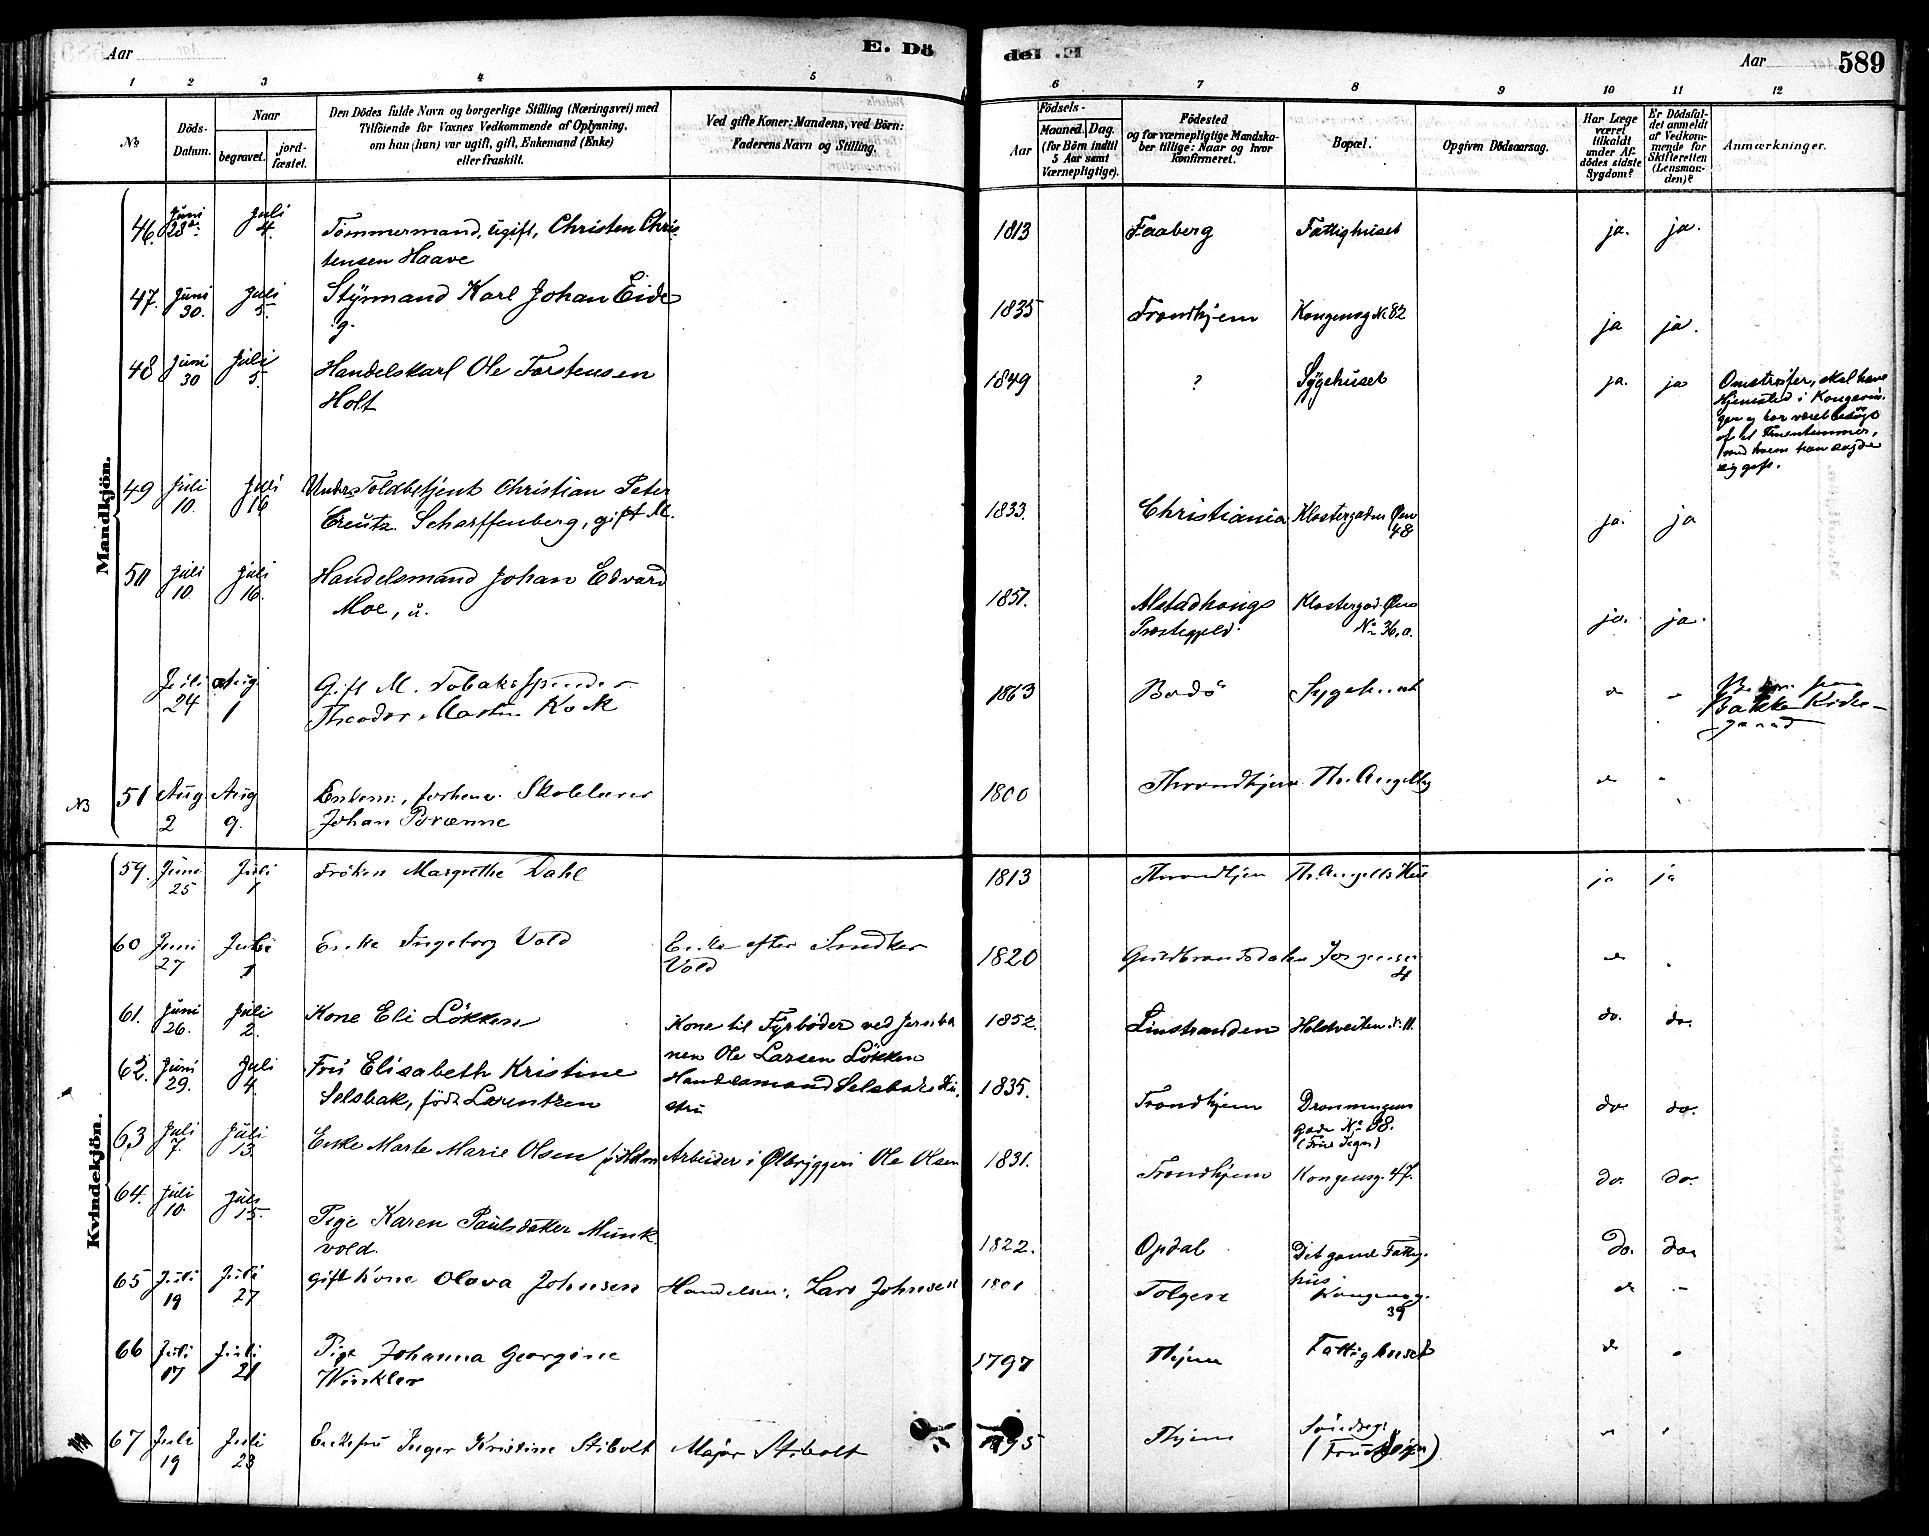 Aar
E. Dö
del. E.
Aar
589
1 2 3 4 5 6 7 8 9 10 11 12
№
Döds-
Datum.
Naar
begravet.
jord-
fæstet.
Den Dödes fulde Navn og borgerlige Stilling (Næringsvei) med
Tilföiende for Voxnes Vedkommende af Oplysning,
om han (hun) var ugift, gift, Enkemand (Enke)
eller fraskilt.
Ved gifte Koner: Mandens, ved Börn:
Faderens Navn og Stilling.
Födsels-
Aar
Maaned. Dag.
(for Börn indtil
5 Aar samt
Værnepligtige).
Födested
og for værnepligtige Mandska-
ber tillige: Naar og hvor
konfirmeret.
Bopæl.
Opgiven Dödsaarsag.
Har Læge
været
tilkaldt
under Af-
dödes sidste
Sygdom?
Er Dödsfal-
det anmeldt
af Vedkom-
mende for
Skifteretten
(Lensman-
den)?
Anmærkninger.
Mandkjön.
46. Juni 28de Juli 4. Tømmermand, ugift, Christen Chris-
tensen Haave
1813 Faaberg Fattighuset ja. ja.
47. Juni 30. Juli 5. Styrmand Karl Johan Eide
g.
1835 Trondhjem Kongensg № 82 ja ja.
48 Juni 30 Juli 5. Handelskarl Ole Torstensen
Holt
1849 ? Sygehuset ja. ja
Omstreifer, skal have
Hjemsted i Kongsvin-
ger og har været besøgt
af et Fruentimmer,
med hvem han sagde
sig gift.
49 Juli 10. Juli 16 Under Toldbetjent Christian Peter
Creutz Scharffenberg, gift M.
1833. Christiania Klostergaden Øvre
48 ja. ja
50 Juli 10. Juli 16. Handelsmand Johan Edvard
Moe, u.
1857. Alstadhougs
Præstegjeld. Klostergad. Øvre
№ 36.a. ja. ja.
Juli 24 Aug 1 Gift M. Tobaksspinder
Theodor Martin Kock
1863 Bodö Sygehuset
Bakke Kirke-
gaard
NB 51 Aug. 2 Aug 9. Enkem., forhenv. Skolelærer
Johan Brænne
1800 Throndhjem Th. Angells
Kvindekjön.
59. Juni 25 Juli 1 Fröken Margrethe Dahl
1813 Throndhjem Th. Angells Hus ja ja
60 Juni 27 Juli 1 Enke Ingeborg Vold
Enke efter Snedker
Vold
1820 Guldbrandsdalen
4
61. Juni 26. Juli 2. Kone Eli Løkken
Kone til Fyrbøder ved Jernba
nen Ole Larsen Løkken
1852. Linstranden Holstveiten № 11. do. do.
62. Juni 29. Juli 4. Fru Elisabeth Kristine
Selsbak, født Lorentzen
Handelsmand Selsbaks Hu-
stru
1835. Trondhjem Dronningens
Gade №
do. do.
63 Juli 7. Juli 13. Enke Marte Marie Olsen f. Holm
Arbeider i Ølbryggeri Ole Olsen
1831. Trondhjem Kongensg. 47. do. do.
64. Juli 10. Juli 15. Pige Karen Paulsdatter Munk-
vold.
1822. Opdal Det gamle Fattig-
hus. do. do.
65 Juli 19 Juli 27 gift Kone Olava Johnsen
Handelsm. Lars Johnsen
1801 Tolgen Kongensg.
39
66 Juli 17 Juli 21 Pige Johanna Georgine
Winkler
1797 Thjem Fattighuset
67 Juli 19 Juli 23 Enkefru Inger Kristine Stibolt
Major Stibolt
1795 Thjem